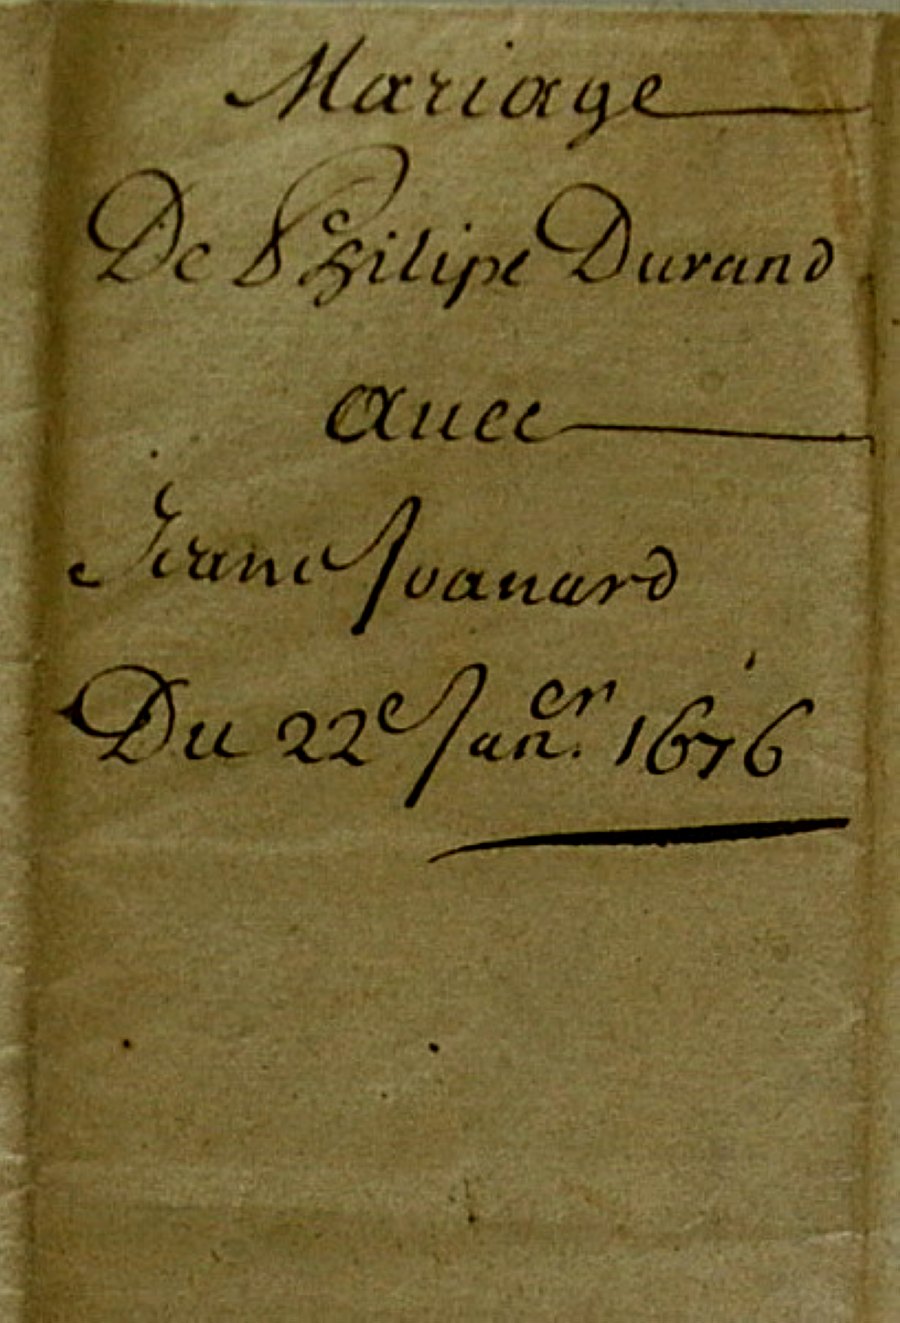 Mariage
De Philipe Durand
auec
Jeane Jvanard
Du 22e Janer. 1676